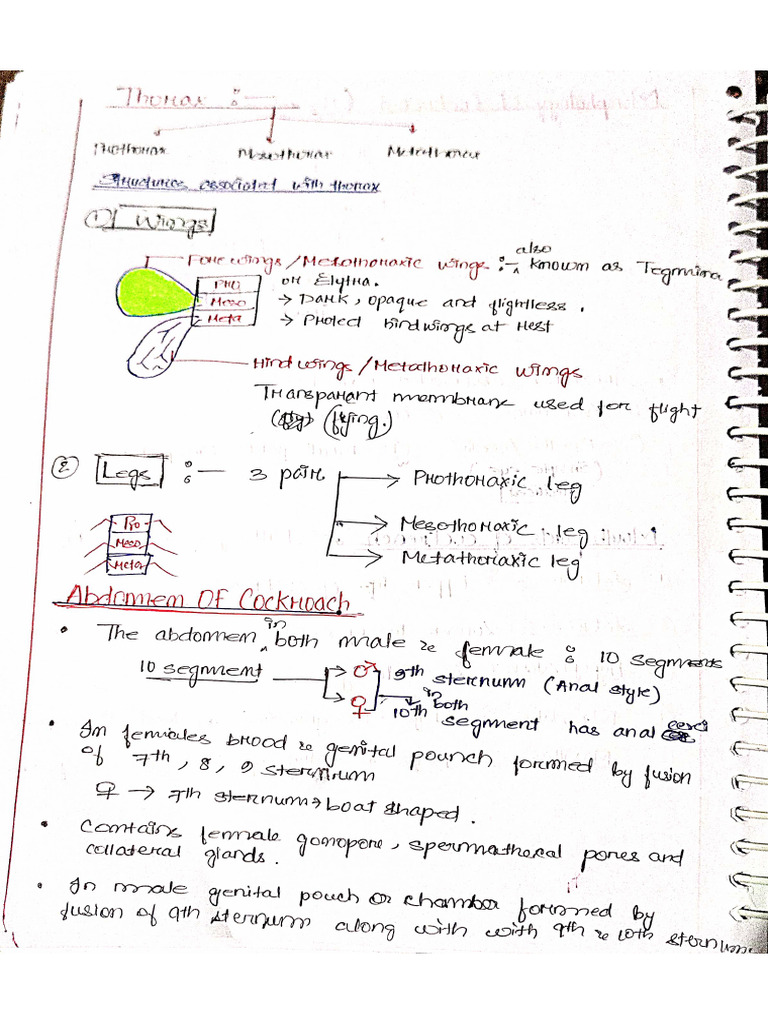 Thorax :-
Prothorax Mesothorax Metathorax
Structures associated with thorax
1) Wings
Fore wings / Mesothoraxic wings :- also known as Tegmina
or Elytra.
Pro
Meso
Meta
→ Dark, opaque and flightless.
→ Protect hind wings at rest
Hind wings / Metathoraxic wings
Transparant membrane used for flight
(flying.)
2 Legs :- 3 pair → Prothoraxic leg
→ Mesothoraxic leg
→ Metathoraxic leg
Pro
Meso
Meta
Abdomem OF Cockroach
• The abdomen in both male & female : 10 segments
10 segment → ♂ 9th sternum (Anal style)
→ ♀ 10th segment in both has anal cerci
• In females brood & genital pounch formed by fusion
of 7th, 8, 9 sternum
♀ → 7th sternum → boat shaped.
• Contains female gonopore, spermathecal pores and
collateral glands.
• In male genital pouch or chamber formed by
fusion of 9th sternum along with with 9th & 10th sternum.